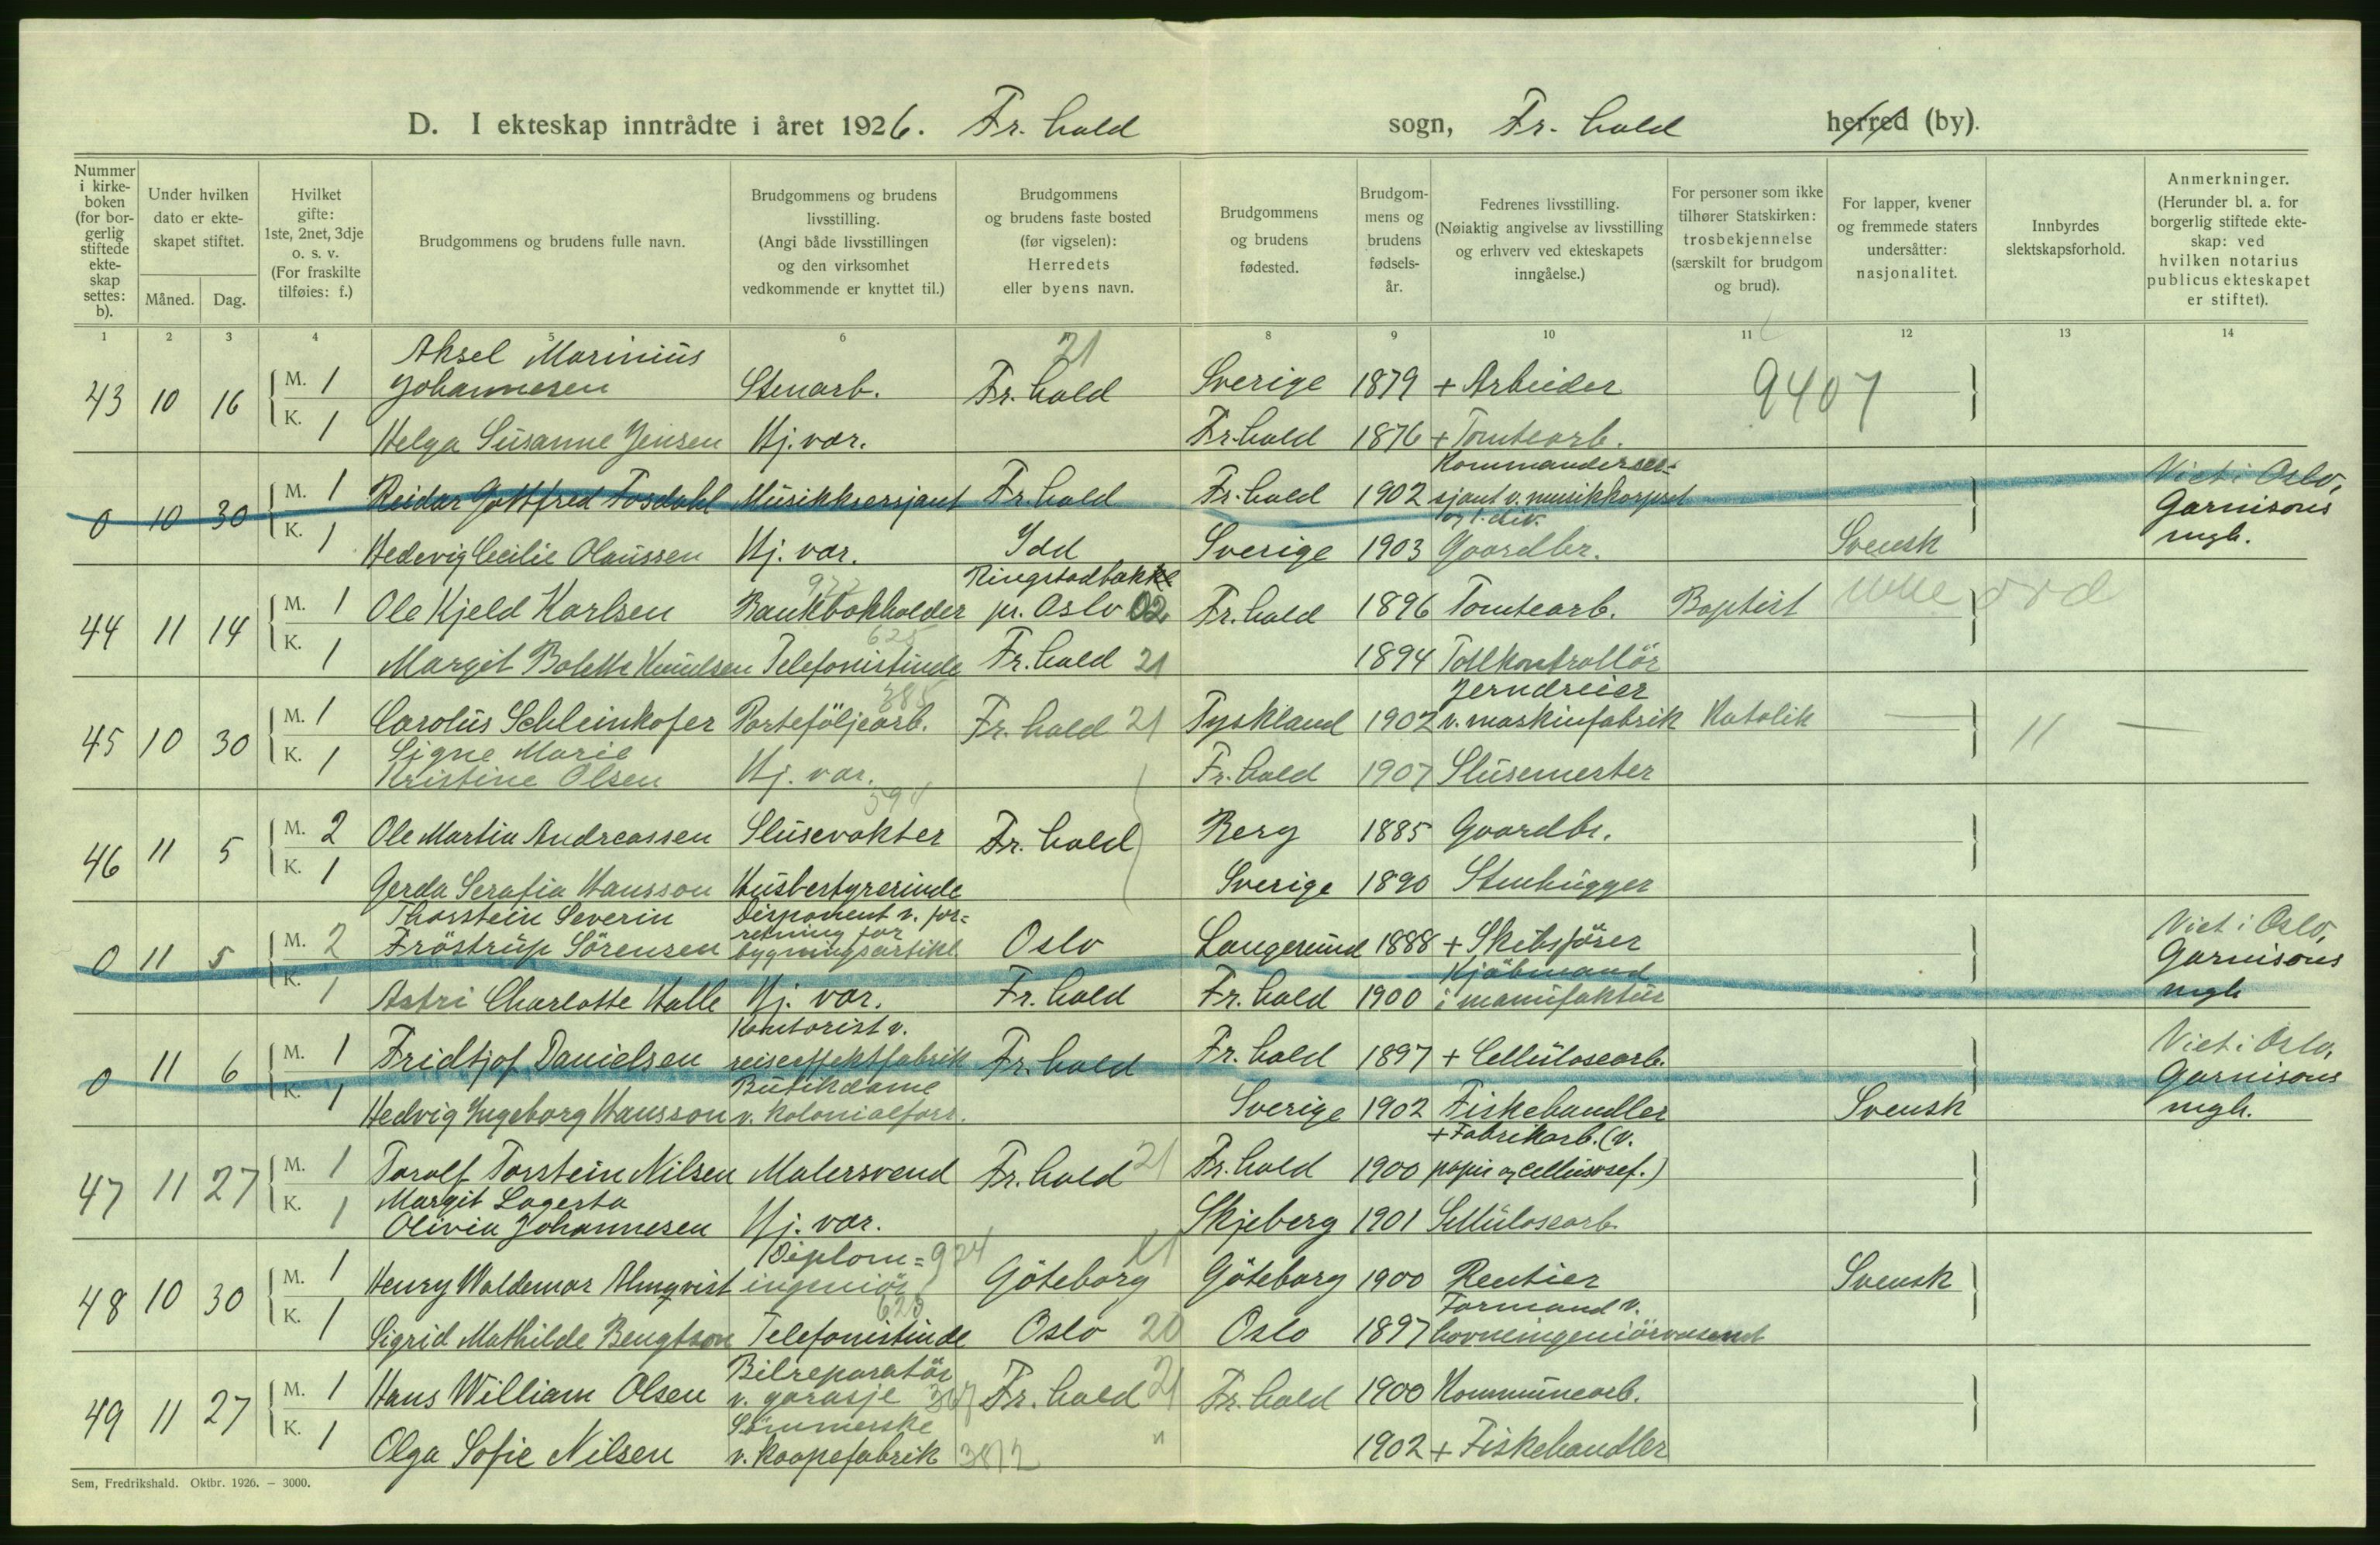 D. I ekteskap inntrådte i året 1926. Fr. hald sogn, Fr. hald herred (by).
Nummer i kirkeboken (for borgerlig stiftede ekteskap settes: b).
Under hvilken dato er ekteskapet stiftet.
Måned. Dag.
Hvilket gifte: 1ste, 2net, 3dje o. s. v. (For fraskilte tilføies: f.)
Brudgommens og brudens fulle navn.
Brudgommens og brudens livsstilling. (Angi både livsstillingen og den virksomhet vedkommende er knyttet til.)
Brudgommens og brudens faste bosted (før vigselen): Herredets eller byens navn.
Brudgommens og brudens fødested.
Brudgommens og brudens fødselsår.
Fedrenes livsstilling. (Nøiaktig angivelse av livsstilling og erhverv ved ekteskapets inngåelse.)
For personer som ikke tilhører Statskirken: trosbekjennelse (særskilt for brudgom og brud).
For lapper, kvener og fremmede staters undersåtter: nasjonalitet.
Innbyrdes slektskapsforhold.
Anmerkninger. (Herunder bl. a. for borgerlig stiftede ekteskap: ved hvilken notarius publicus ekteskapet er stiftet).
1 2 3 4 5 6 8 9 10 11 12 13 14
43 10 16 M. 1 Aksel Marinius Johannesen Stenarb. Fr. hald 21 Sverige 1879 + Arbeider 9407
K. 1 Helga Susanne Jensen Hj. vær. Fr. hald 1876 + Tomtearb.
0 10 30 M. 1 Reidar Gottfred Fosdahl Musikksersjant Fr. hald Fr. hald 1902 Kommandersersjant v. musikkorpset og 1. div. Viet i Oslo, Garnisons mgh.
K. 1 Hedevig Cecilie Olaussen Hj. vær. Idd Sverige 1903 Gaardbr. Svensk
44 11 14 M. 1 Ole Kjeld Karlsen Bankbokholder Ringstadbakke pr. Oslo 02 Fr. hald 1896 Tomtearb. Baptist
K. 1 Margit Bolette Knudsen Telefonistinde 625 Fr. hald 21 1894 Tollkontrollör
45 10 30 M. 1 Carolus Schleinkofer Porteföljearb. 385 Fr. hald 21 Tyskland 1902 Jerndreier v. maskinfabrik Katolik — 11 —
K. 1 Signe Marie Kristine Olsen Hj. vær. Fr. hald 1907 Slusemester
46 11 5 M. 2 Ole Martin Andreassen Slusevokter 594 Fr. hald Berg 1885 Gaardbr.
K. 1 Gerda Serafia Hansson Husbestyrerinde Sverige 1890 Stenhugger
0 11 5 M. 2 Thorstein Severin Fröstrup Sörensen Disponent v. forretning for bygningsartikl. Oslo Langesund 1888 + Skibsförer Viet i Oslo, Garnisons mgh
K. 1 Astri Charlotte Halle Hj. vær. Fr. hald Fr. hald 1900 Kjöbmand i manufaktur
0 11 6 M. 1 Fridtjof Danielsen Kontorist v. reiseeffektfabrik Fr. hald Fr. hald 1897 + Cellulosearb. Viet i Oslo, Garnisons mgh.
K. 1 Hedvig Ingeborg Hansson Butikdame v. kolonialforr. Sverige 1902 Fiskehandler Svensk
47 11 27 M. 1 Toralf Torstein Nilsen Malersvend Fr. hald 21 Fr. hald 1900 + Fabrikarb. (v. papir og cellulosef.)
K. 1 Margit Lagerta Olivia Johannesen Hj. vær. Skjeberg 1901 Cellulosearb.
48 10 30 M. 1 Henry Waldemar Almqvist Diplom=ingeniör 924 Göteborg Göteborg 1900 Rentier Svensk
K. 1 Sigrid Mathilde Bengtson Telefonistinde 625 Oslo 20 Oslo 1897 Formand v. havneingeniörvesenet
49 11 27 M. 1 Hans William Olsen Bilreparatör v. garasje Fr. hald 21 Fr. hald 1900 Kommunearb.
K. 1 Olga Sofie Nilsen Sömmerske v. kaapefabrik " 1902 + Fiskehandler
Sem, Fredrikshald. Oktbr. 1926. — 3000.